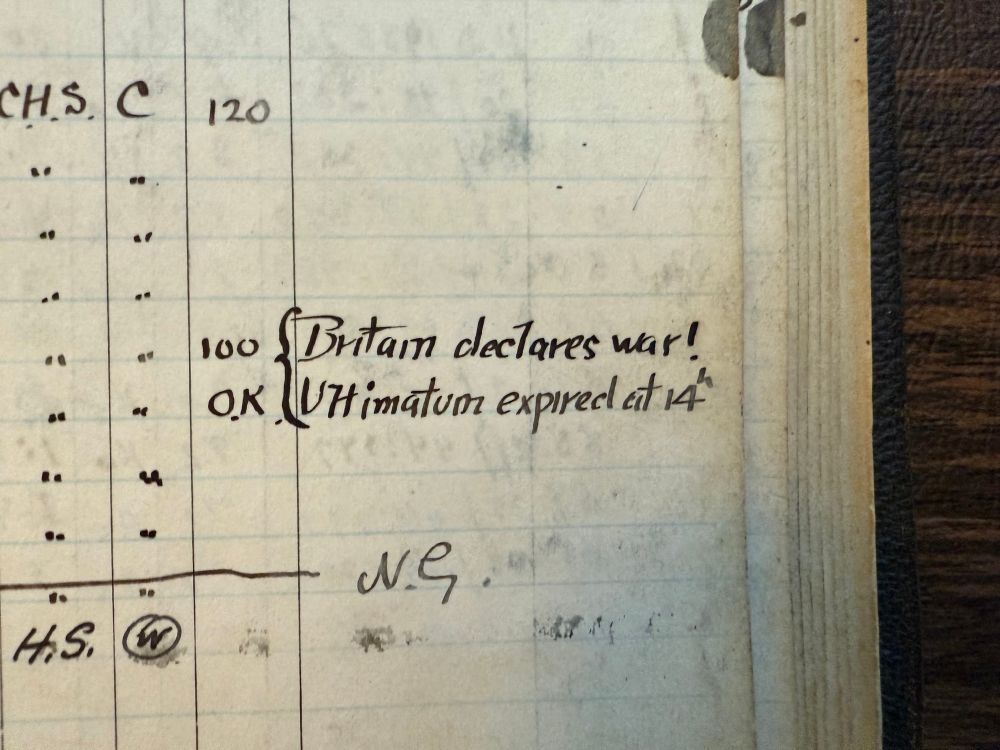 C.H.S. C 120
" "
" "
" "
" " 100 { Britain declares war!
" " O.K { Ultimatum expired at 14h
" "
" "
N.G.
" "
H.S. W